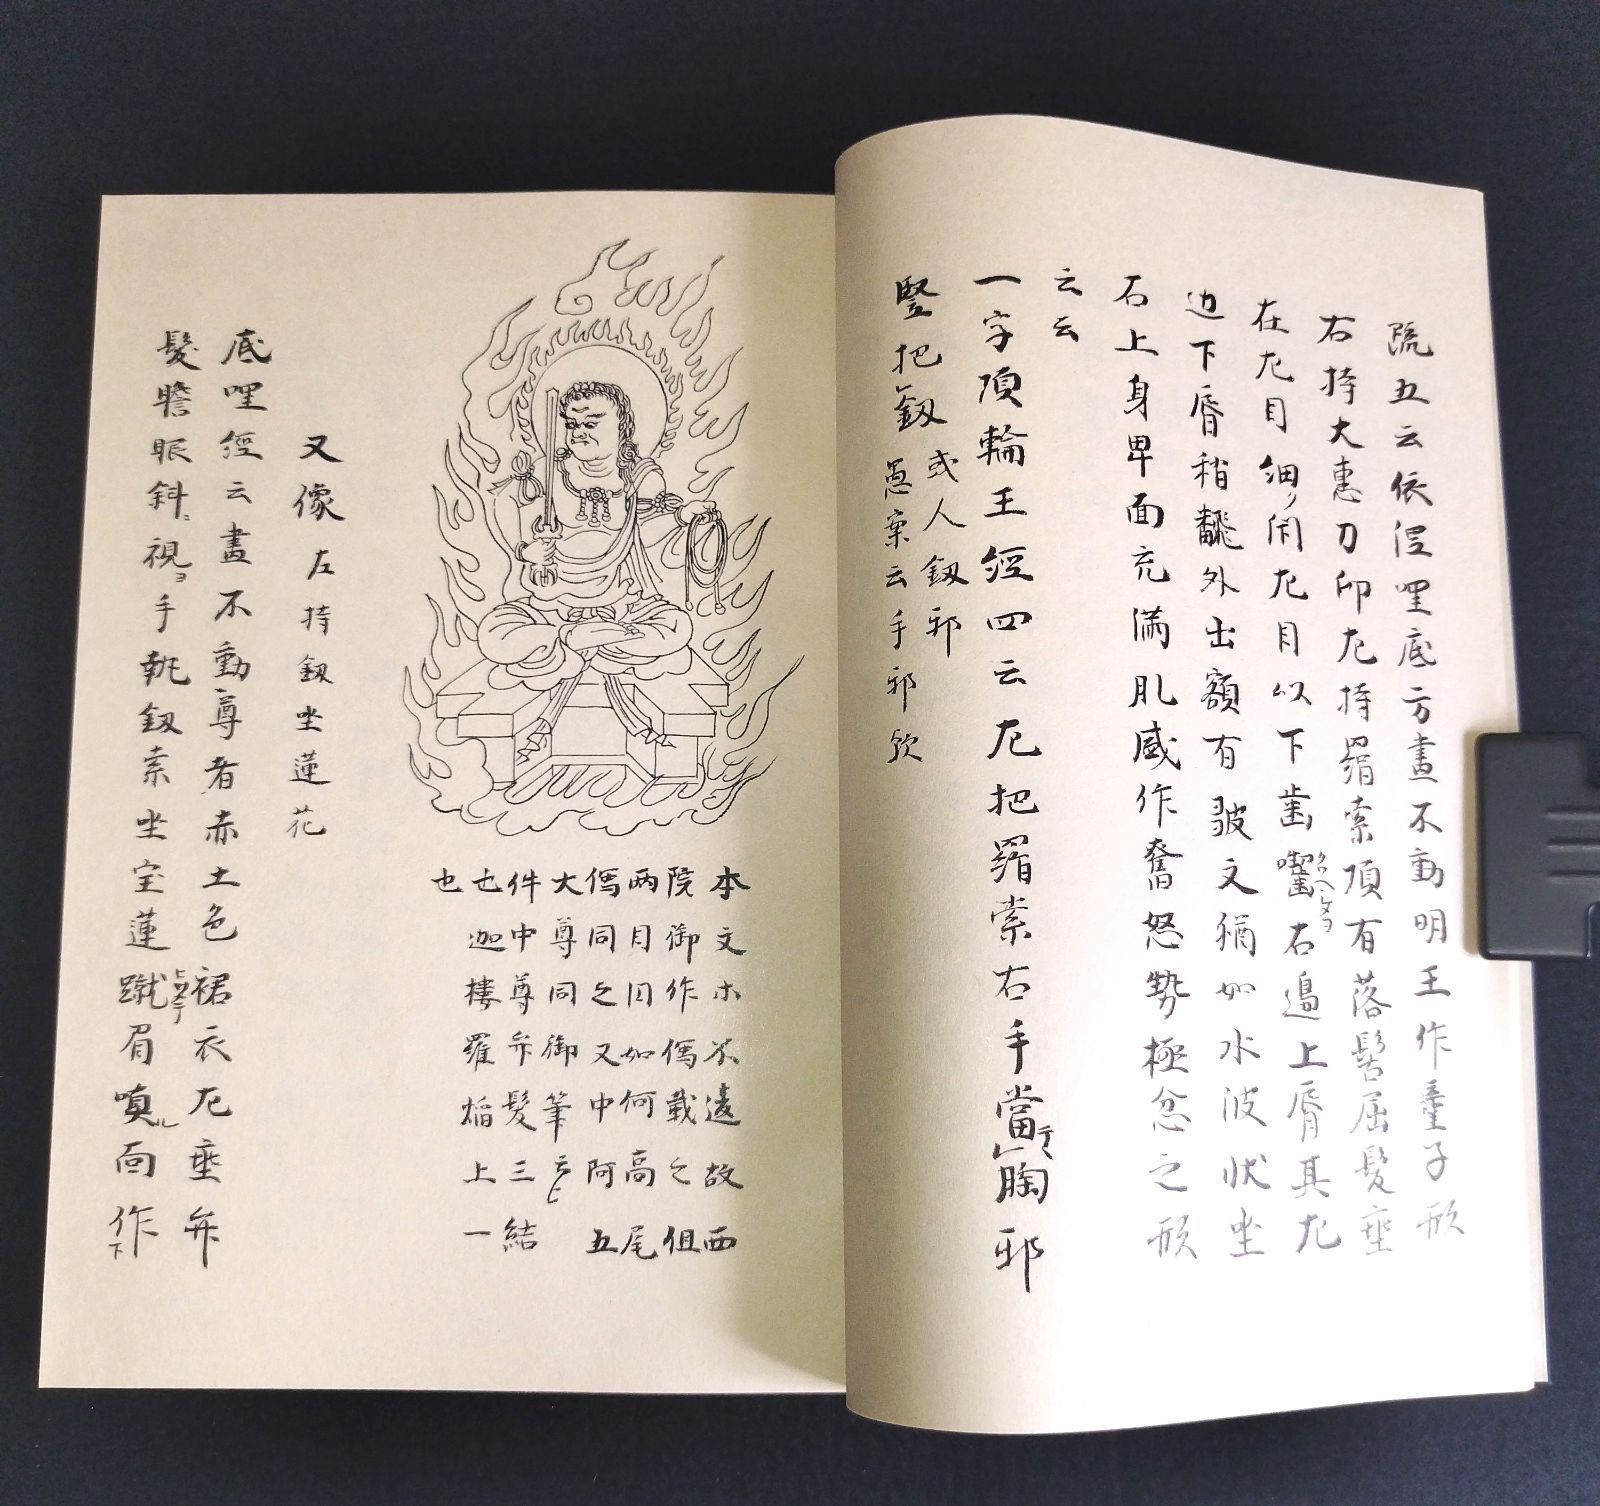 疏五云依涅哩底方畫不動明王作童子形
右持大惠刀印左持羂索頂有落髻屈髮垂
在左目細閇左目以下歯囓右邊上脣其左
边下脣稍飜外出額有皺文猶如水波狀坐
石上身卑面充滿肌盛作奮怒勢極忿之形
云云
一字頂輪王經四云左把羂索右手當胸邪
竪把釼
或人釼邪
愚案云手邪欤
本文不違故西
院御作儒載之但
兩目目如何高尾
儒同之又中阿五
大尊同御筆云
件中尊弁髮三結
也迦樓羅焔上一
也
又像左持釼坐蓮花
底哩經云畫不動尊者赤土色裙衣左垂弁
髮瞻眼斜視手執釼索坐宝蓮蹴眉嗔面作